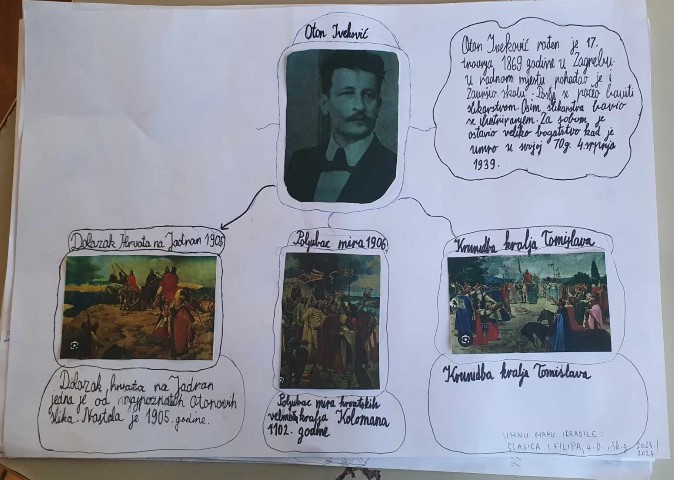 Oton Iveković
Oton Iveković rođen je 17.
travnja 1869 godine u Zagrebu.
u rodnom mjestu pohađao je i
završio školu. Poslije se počeo baviti
slikarstvom. Osim slikarstva bavio
se ilustriranjem. Za sobom je
ostavio veliko bogatstvo kad je
umro u svojoj 70g. 4. srpnja
1939.
Dolazak Hrvata na Jadran 1905
Poljubac mira 1906
Krunidba kralja Tomislava
Dolazak hrvata na Jadran
jedna je od najpoznatih Otonovih
slika. Nastala je 1905. godine.
Poljubac mira hrvatskih
velmoža kralja Kolomana
1102. godine
Krunidba kralja Tomislava
UMNU MAPU IZRADILE:
SLAVICA I FILIPA, 4.D, šk.g. 2023/
2024